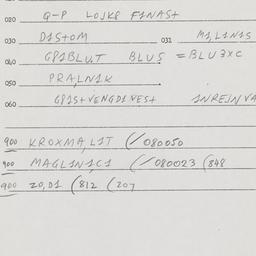 020 G-P LOJK8 FINAST
030 DISTOM 031 MI,LINIS
040 GPIBLUT BLUS = BLU3XC
050 PRALNIK
060 GPIS+VENGDIVES+ INREJNVA
900 KROXMA,LIT (/080050
900 MAGLINICI (/080023 (848
900 ZO,DI (812 (207